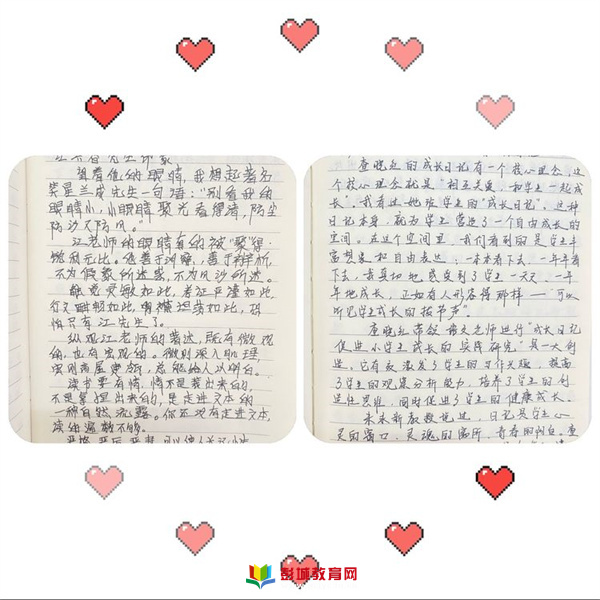 望着他的眼睛,我想起著名
笑星兰成先生一句语:"别看我的
眼睛小,小眼睛聚光看得清,防尘
防沙又防风。"
江老师的眼睛真的被"聚"得
锐利无比。他善于洞察,善于辨析,
不为假象所迷惑,不为风沙所迷。
敏觉灵敏如此,考证严谨如此,
行文晓畅如此,胸襟坦荡如此,恐
怕只有江先生了。
纵观江老师的著述,既有微观
的,也有宏观的。微则深入肌理
虫则高屋建瓴,总能给人以明白。
读书要有情,情不是装出来的,
不是掌捏出来的,是走进文本的
一种自然流露。你还没有走进文本,
读的遍数不够。
查晓红的成长日记有一个核心理念,这
个核心理念就是"相互关爱,和学生一起成
长"。我看过她班学生的"成长日记",这种
日记本身,就为学生营造了一个自由成长的
空间。在这个空间里,我们看到的是学生丰
富想象和自由表达;一本本看下去,一年年看
下去,我真切地感受到了学生一天天、一年
年地成长,正如有人形容得那样——"可以
听见学生成长的拔节声"。
查晓红带领语文老师进行"成长日记
促进小学生成长的实践研究"是一大创
造,它有效激发了学生的习作兴趣,提高
了学生的观察分析能力,培养了学生的创
造性思维,同时促进了学生的健康成长。
朱永新教授说过,日记是学生心
灵的窗口、灵魂的寓所、青春的独白。查
彭城教育网